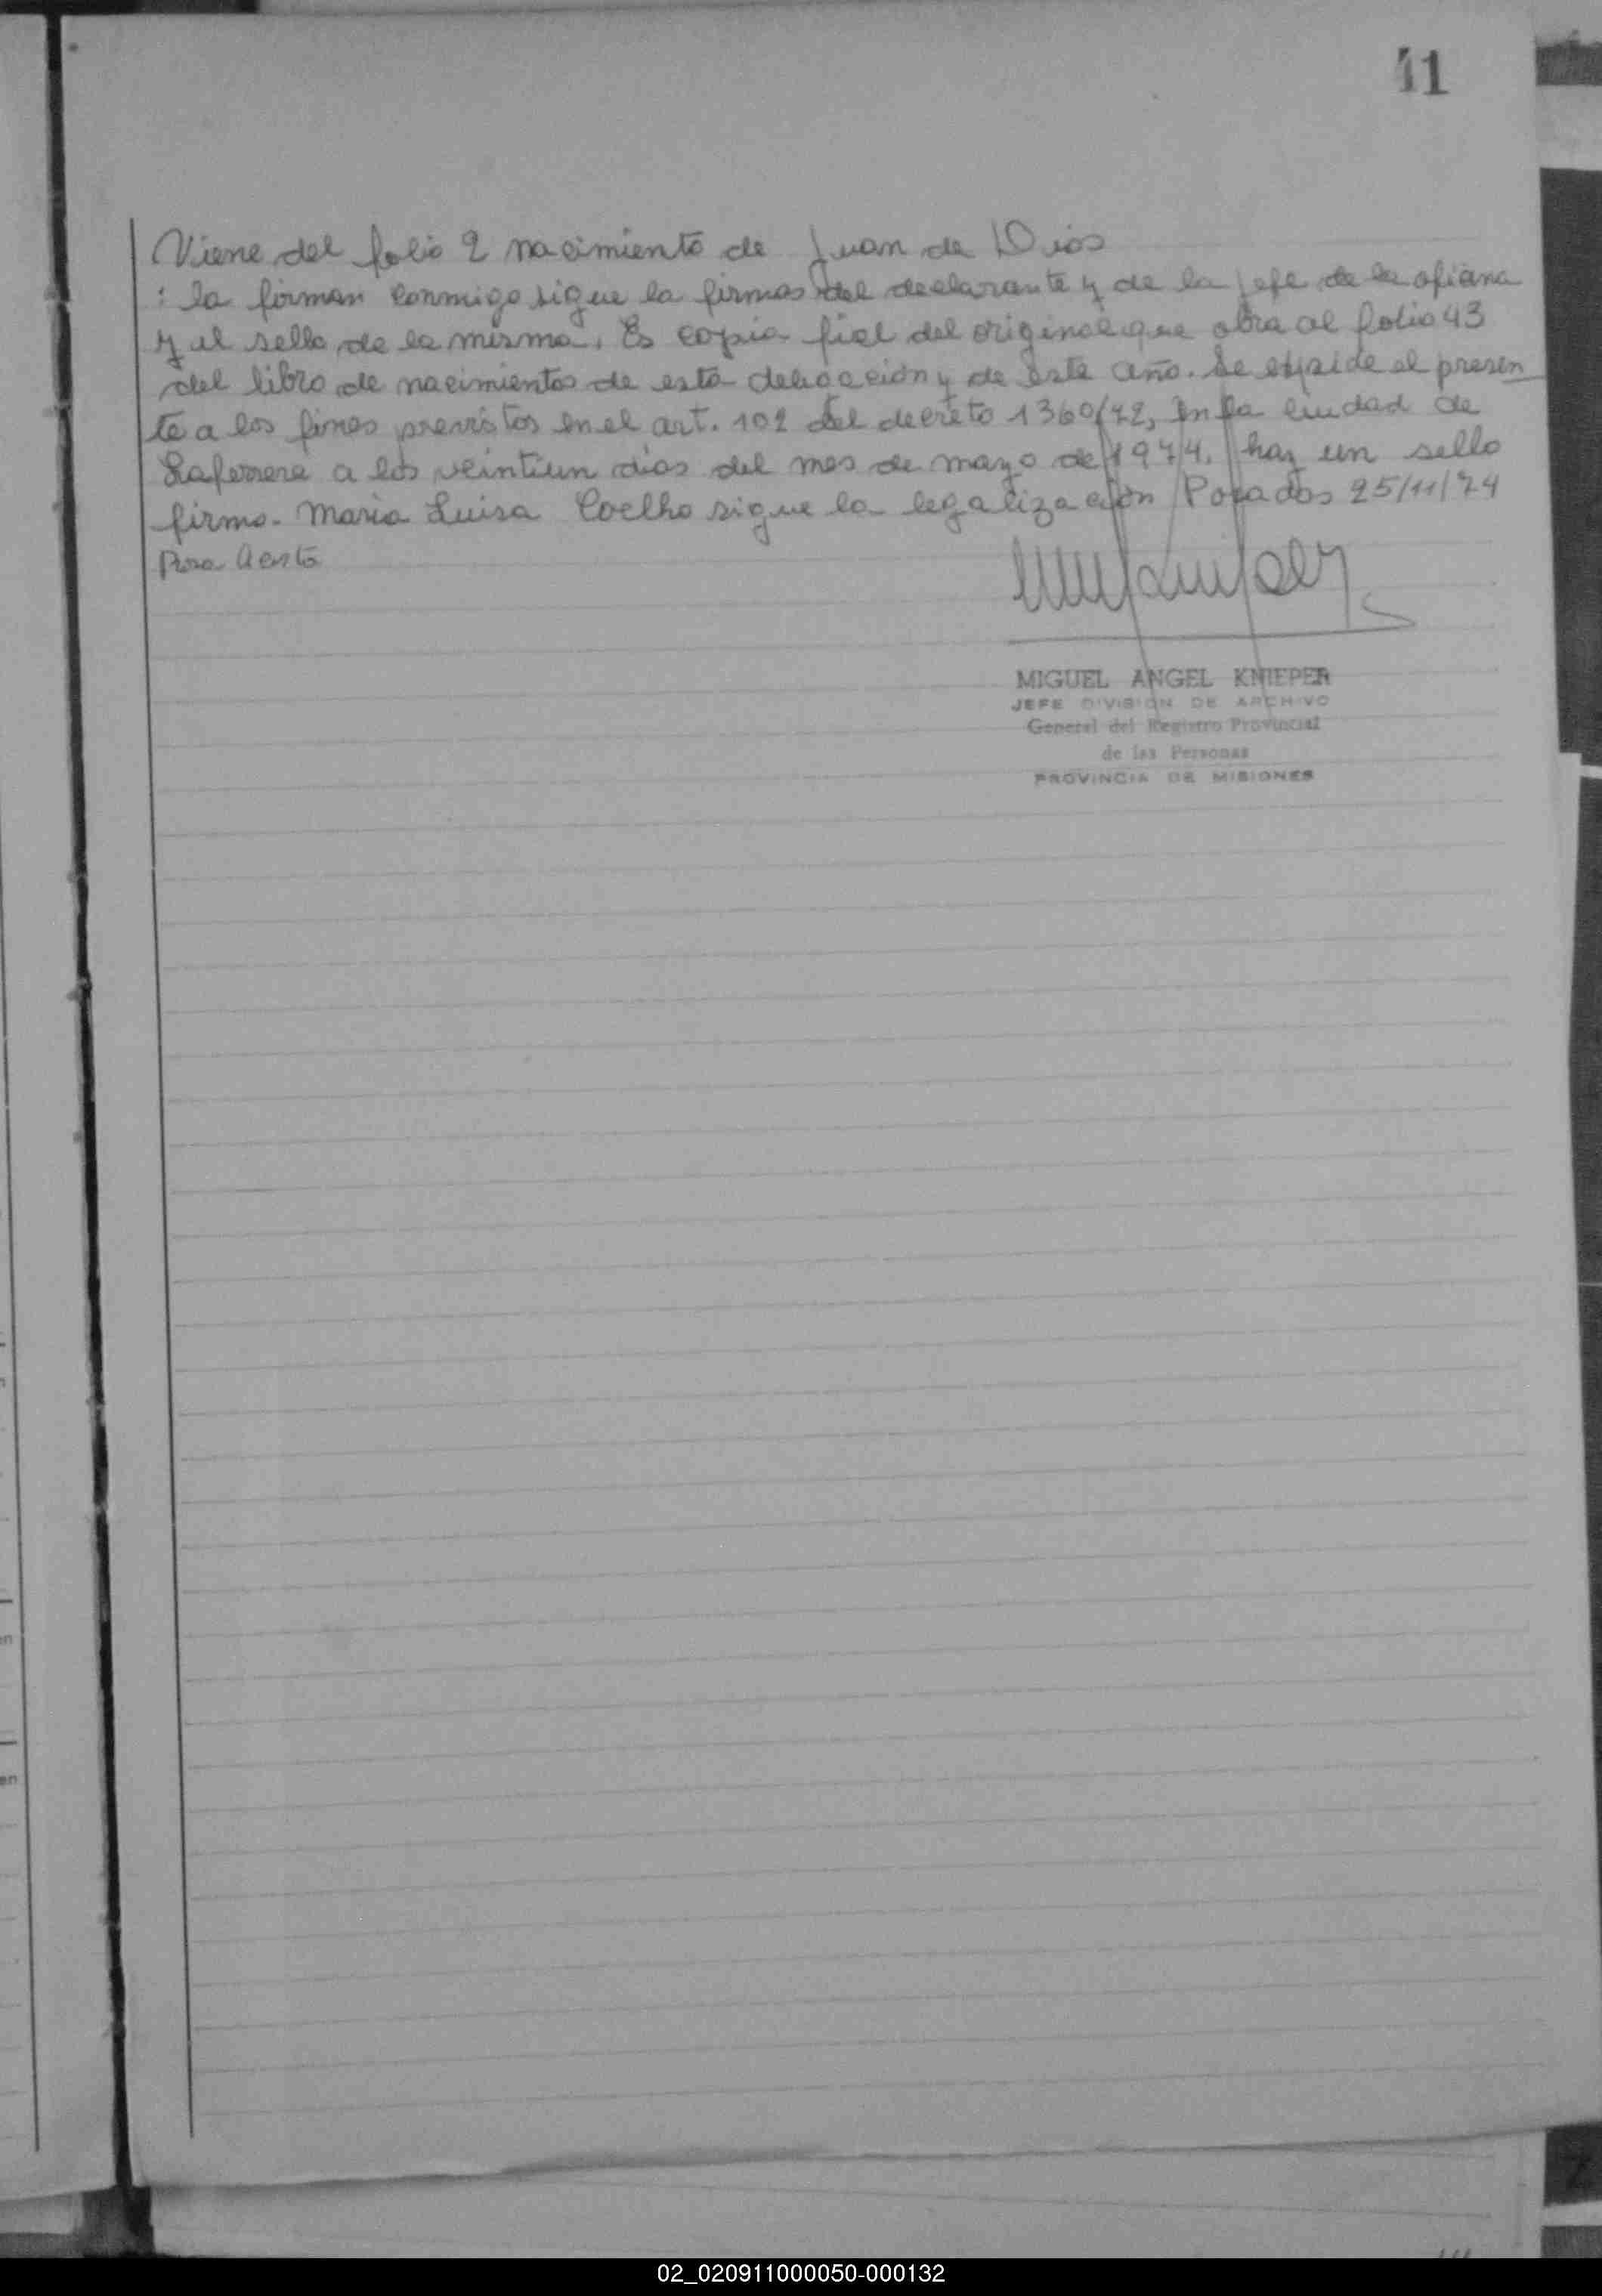 11
Viene del folio 2 nacimiento de Juan de Dios
: la firman conmigo sigue la firmas del declarante y de la jefe de la oficina
y el sello de la misma. Es copia fiel del original que obra al folio 43
del libro de nacimientos de esta delegación y de este año. Se expide el presen
te a los fines previstos en el art. 102 del decreto 1360/72, en la ciudad de
Laferrere a los veintiun dias del mes de mayo de 1974. hay un sello
firmo. Maria Luisa Coelho sigue la legalización Posadas 25/11/74
Rosa Acosta
MIGUEL ANGEL KNIEPER
JEFE DIVISION DE ARCHIVO
General del Registro Provincial
de las Personas
PROVINCIA DE MISIONES
02_020911000050-000132